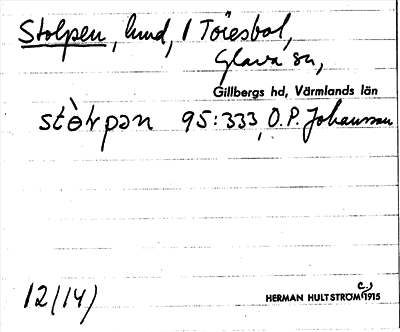 Stolpen, hund, 1 Töresbol,
Glava sn,
Gillbergs hd, Värmlands län
stɵ̀ɽpən 95:333, O.P. Johansson
12/14)
HERMAN HULTSTRÖM c:a 1915